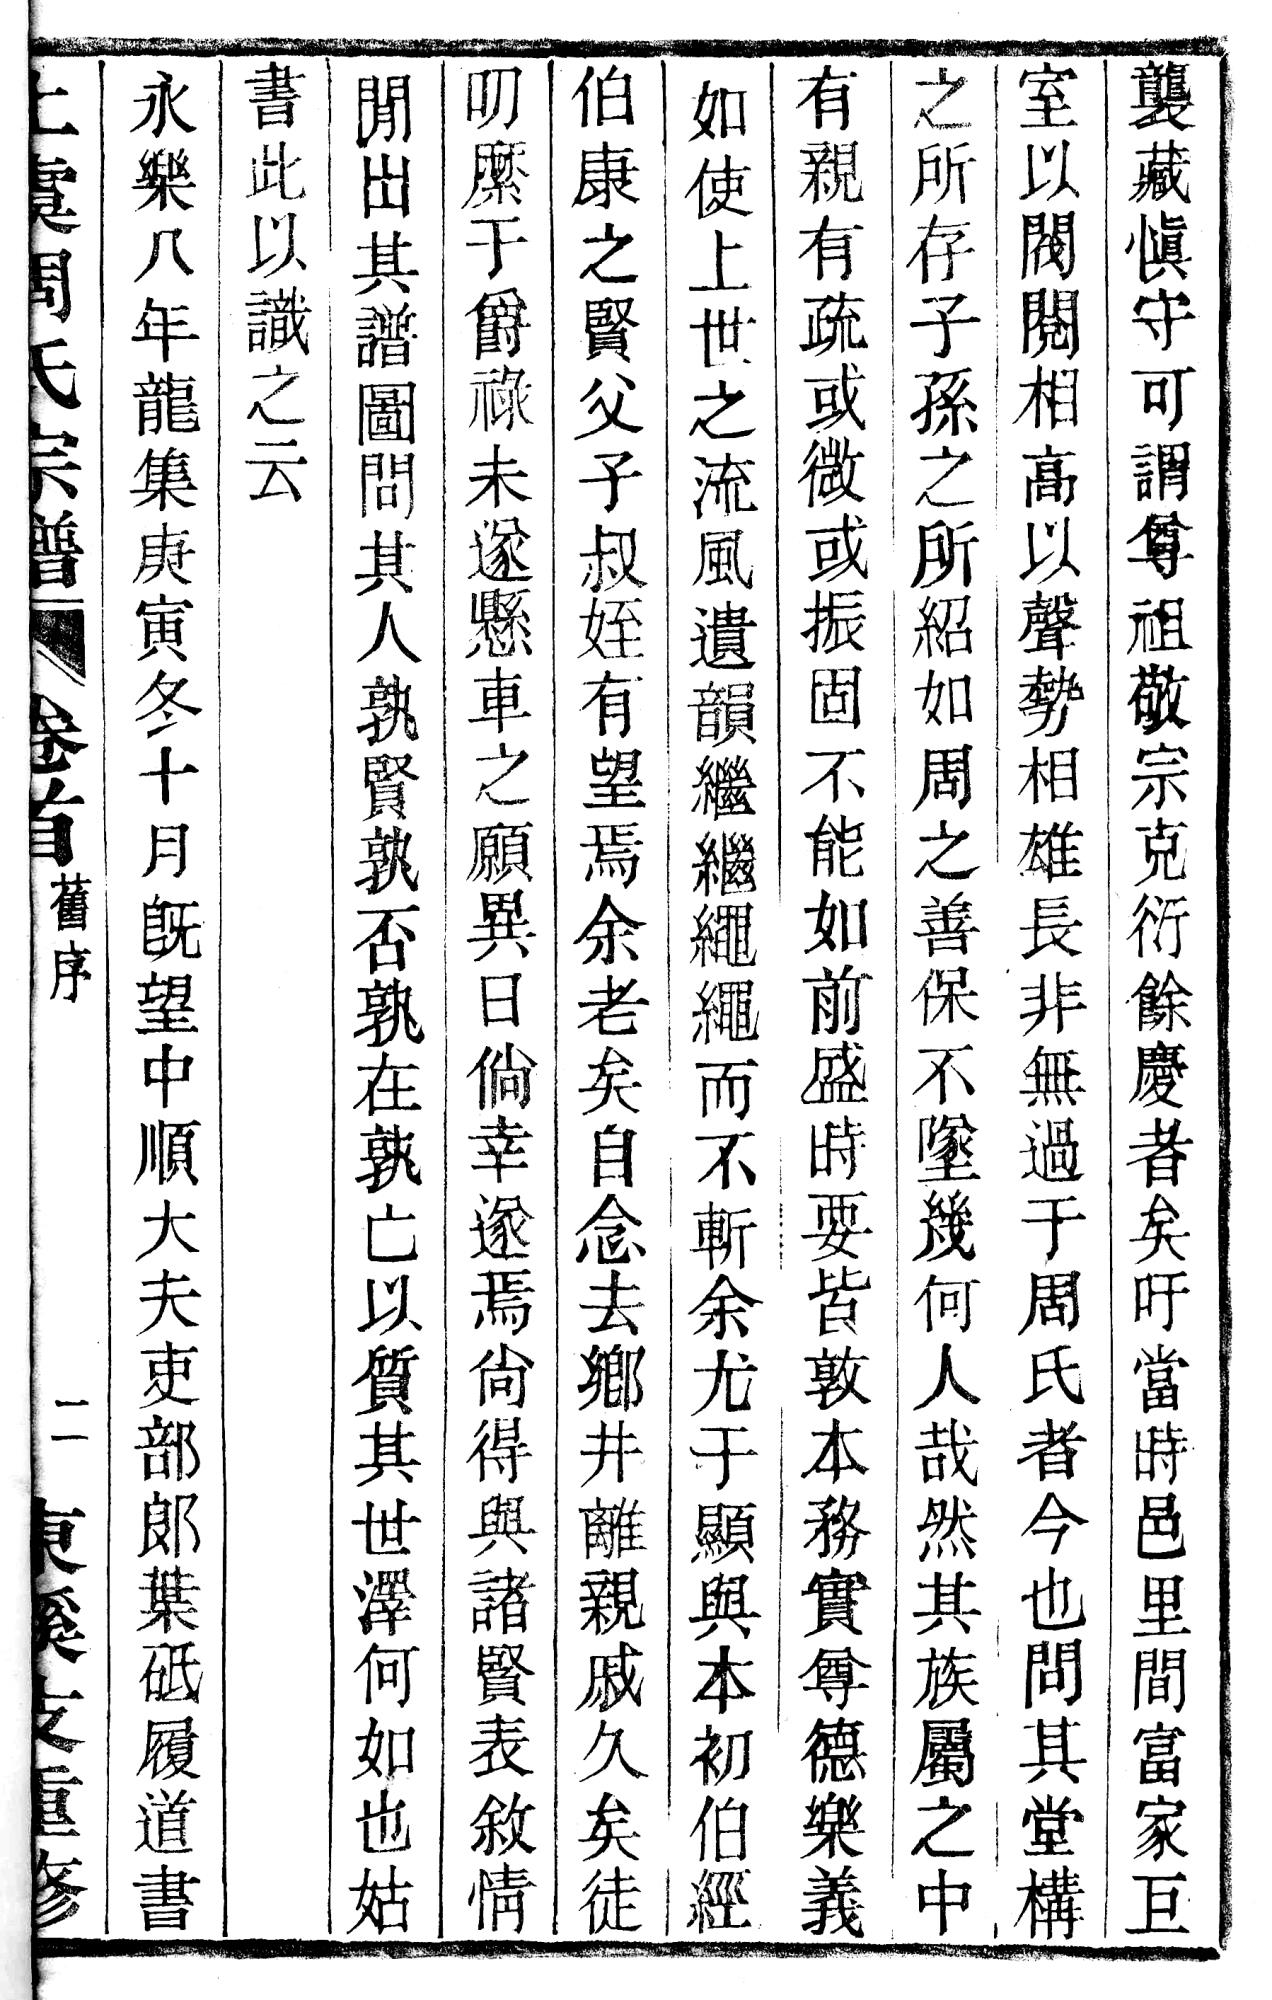 襲藏慎守可謂尊祖敬宗克衍餘慶者矣吁當時邑里間富家巨
室以閥閱相高以聲勢相雄長非無過于周氏者今也問其堂構
之所存子孫之所紹如周之善保不墜幾何人哉然其族屬之中
有親有疏或微或振固不能如前盛時要皆敦本務實尊德樂義
如使上世之流風遺韻繼繼繩繩而不斬余尤于顯與本初伯經
伯康之賢父子叔姪有望焉余老矣自念去鄉井離親戚久矣徒
叨縻于爵祿未遂懸車之願異日倘幸遂焉尚得與諸賢表敘情
閒出其譜圖問其人孰賢孰否孰在孰亡以質其世澤何如也姑
書此以識之云
永樂八年龍集庚寅冬十月既望中順大夫吏部郎葉砥履道書
上虞周氏宗譜 卷首 舊序 二 東溪支重修